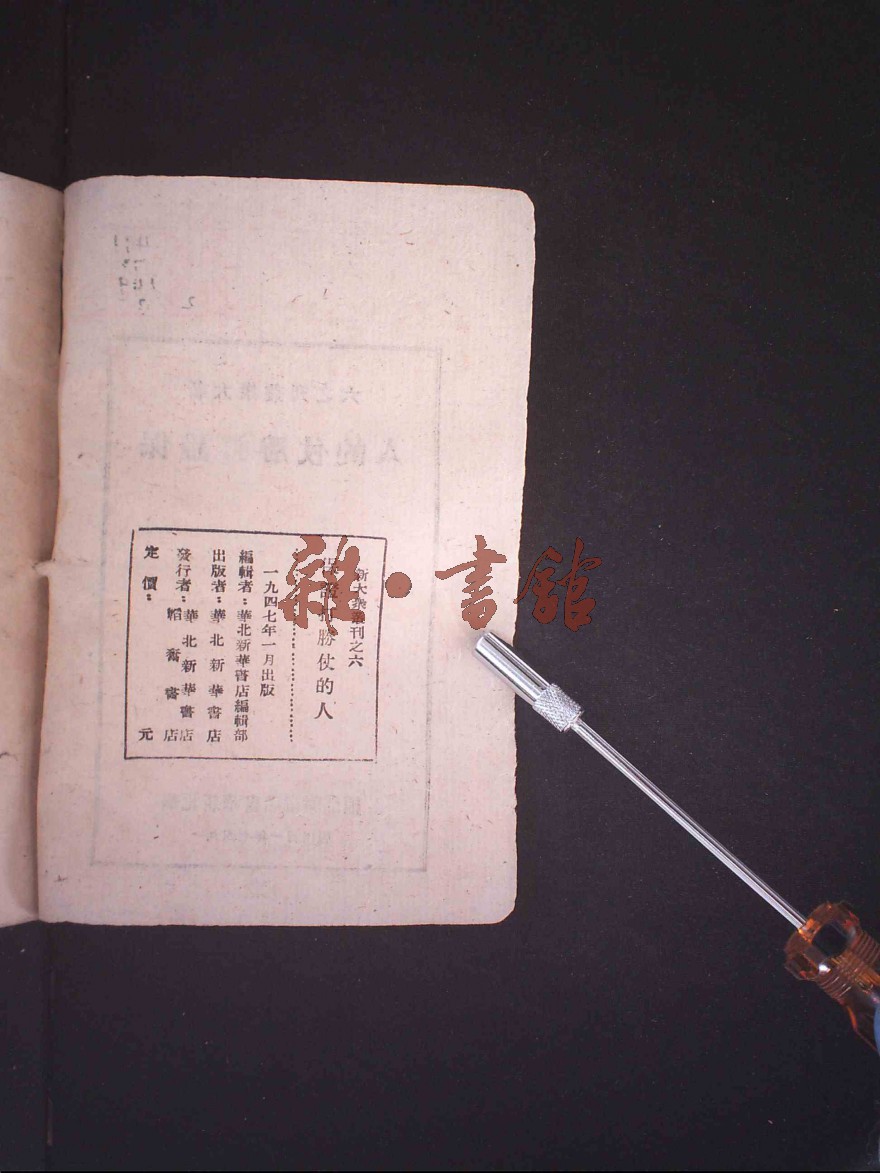 新大衆叢刊之六
保證打勝仗的人
一九四七年一月出版
編輯者：華北新華書店編輯部
出版者：華北新華書店
發行者：華北新華書店
韜奮書店
定價：　元
雜·書館